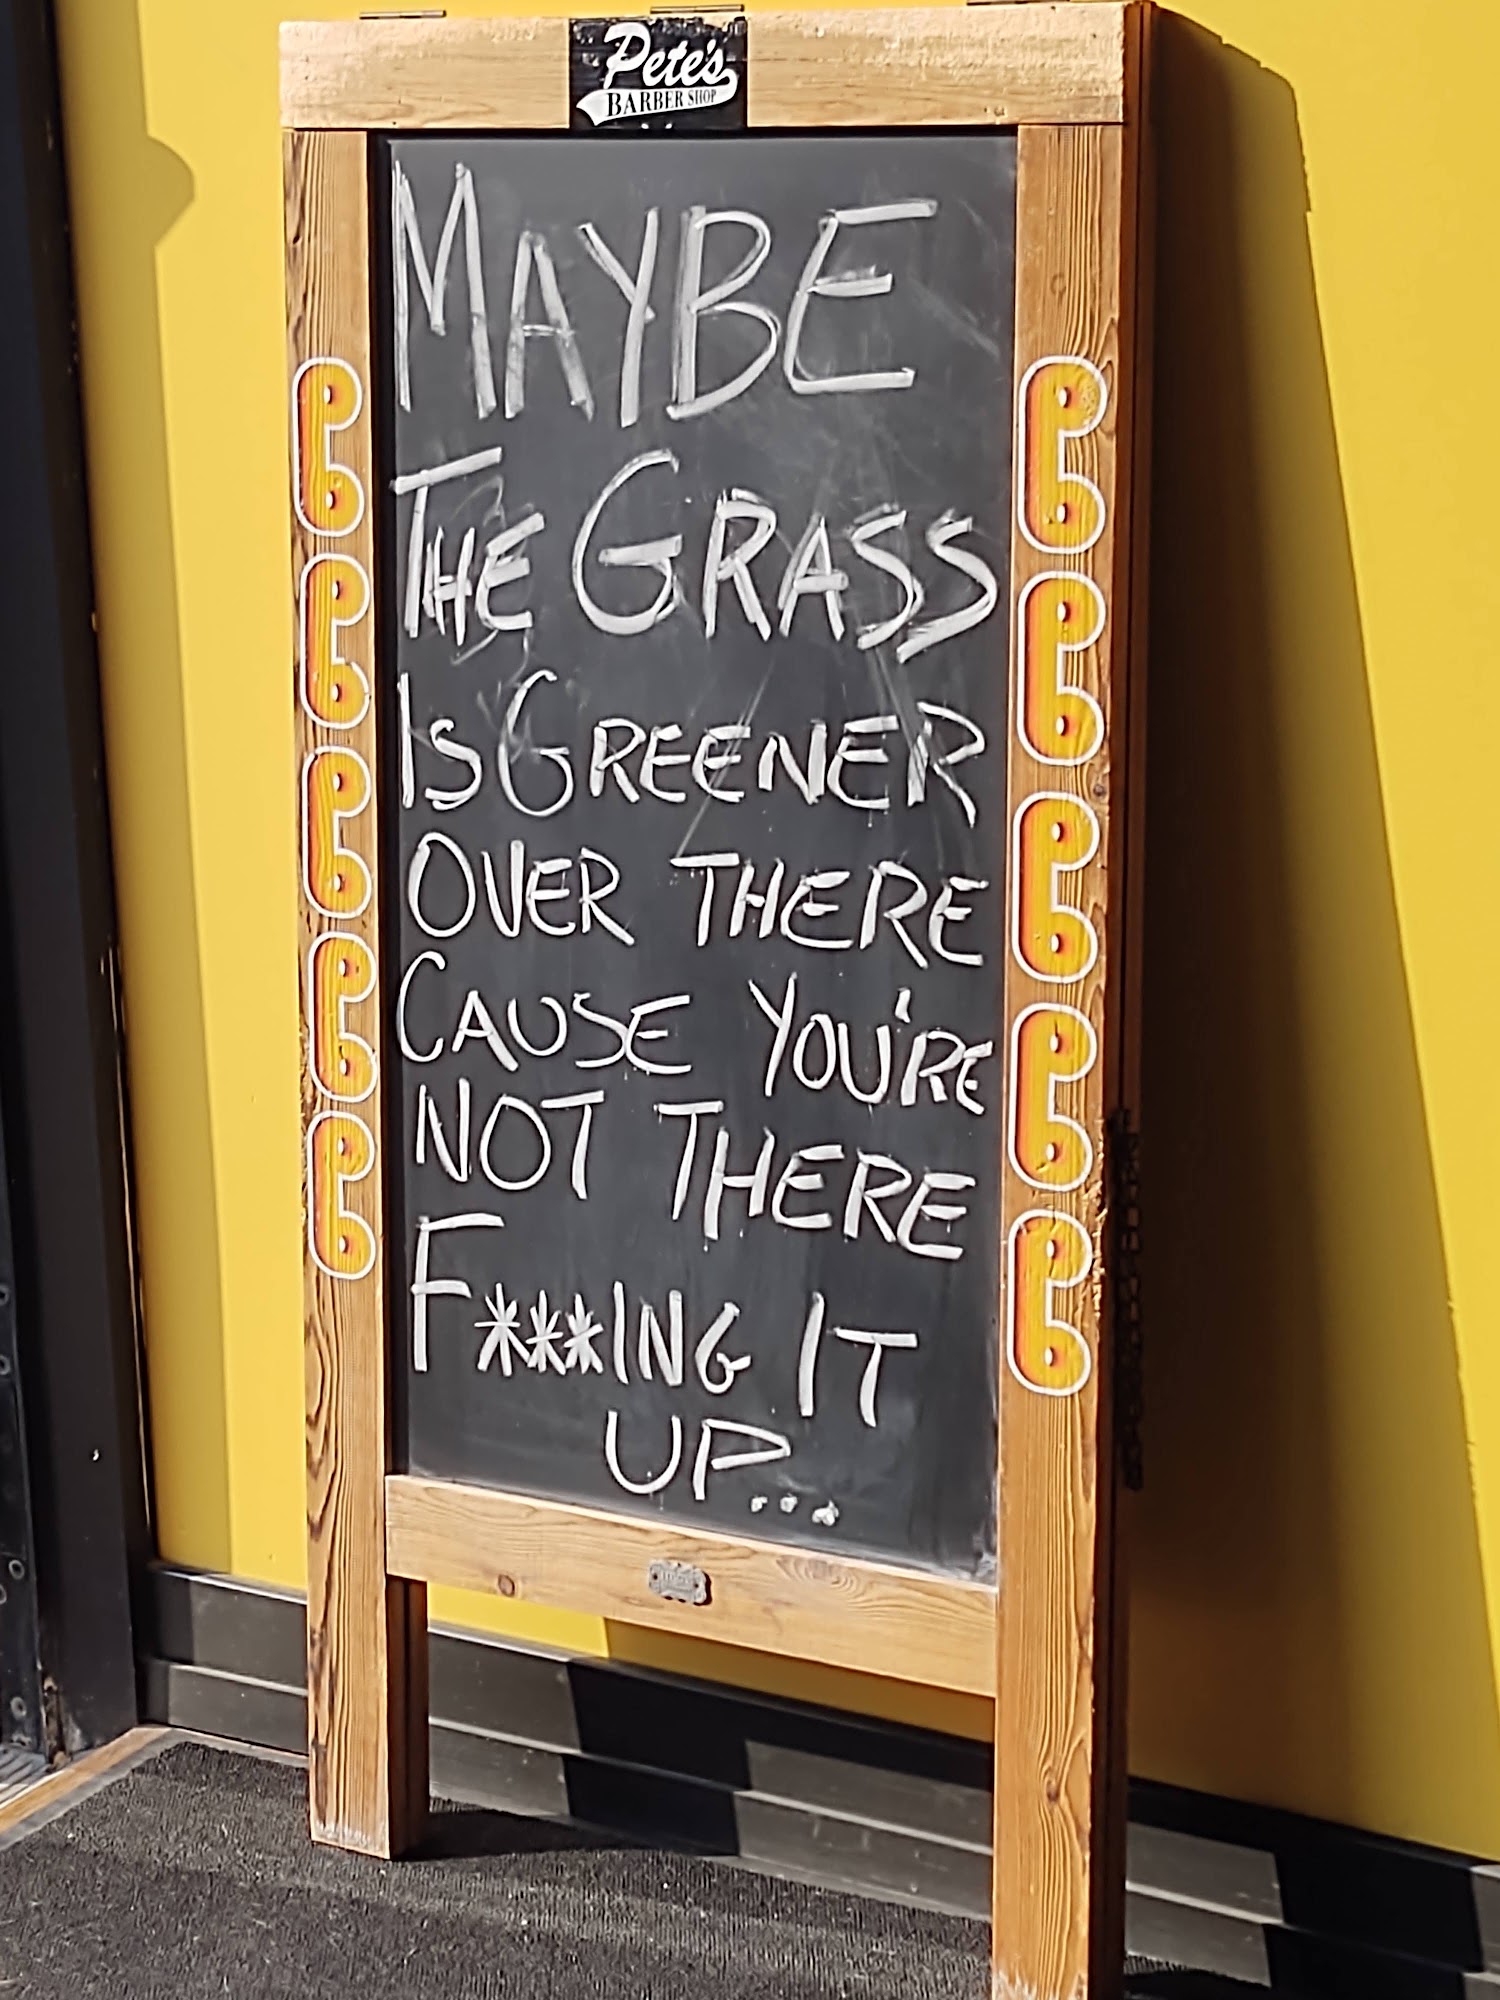 Pete's
BARBER SHOP
MAYBE
THE GRASS
IS GREENER
OVER THERE
CAUSE YOU'RE
NOT THERE
F***ING IT
UP...